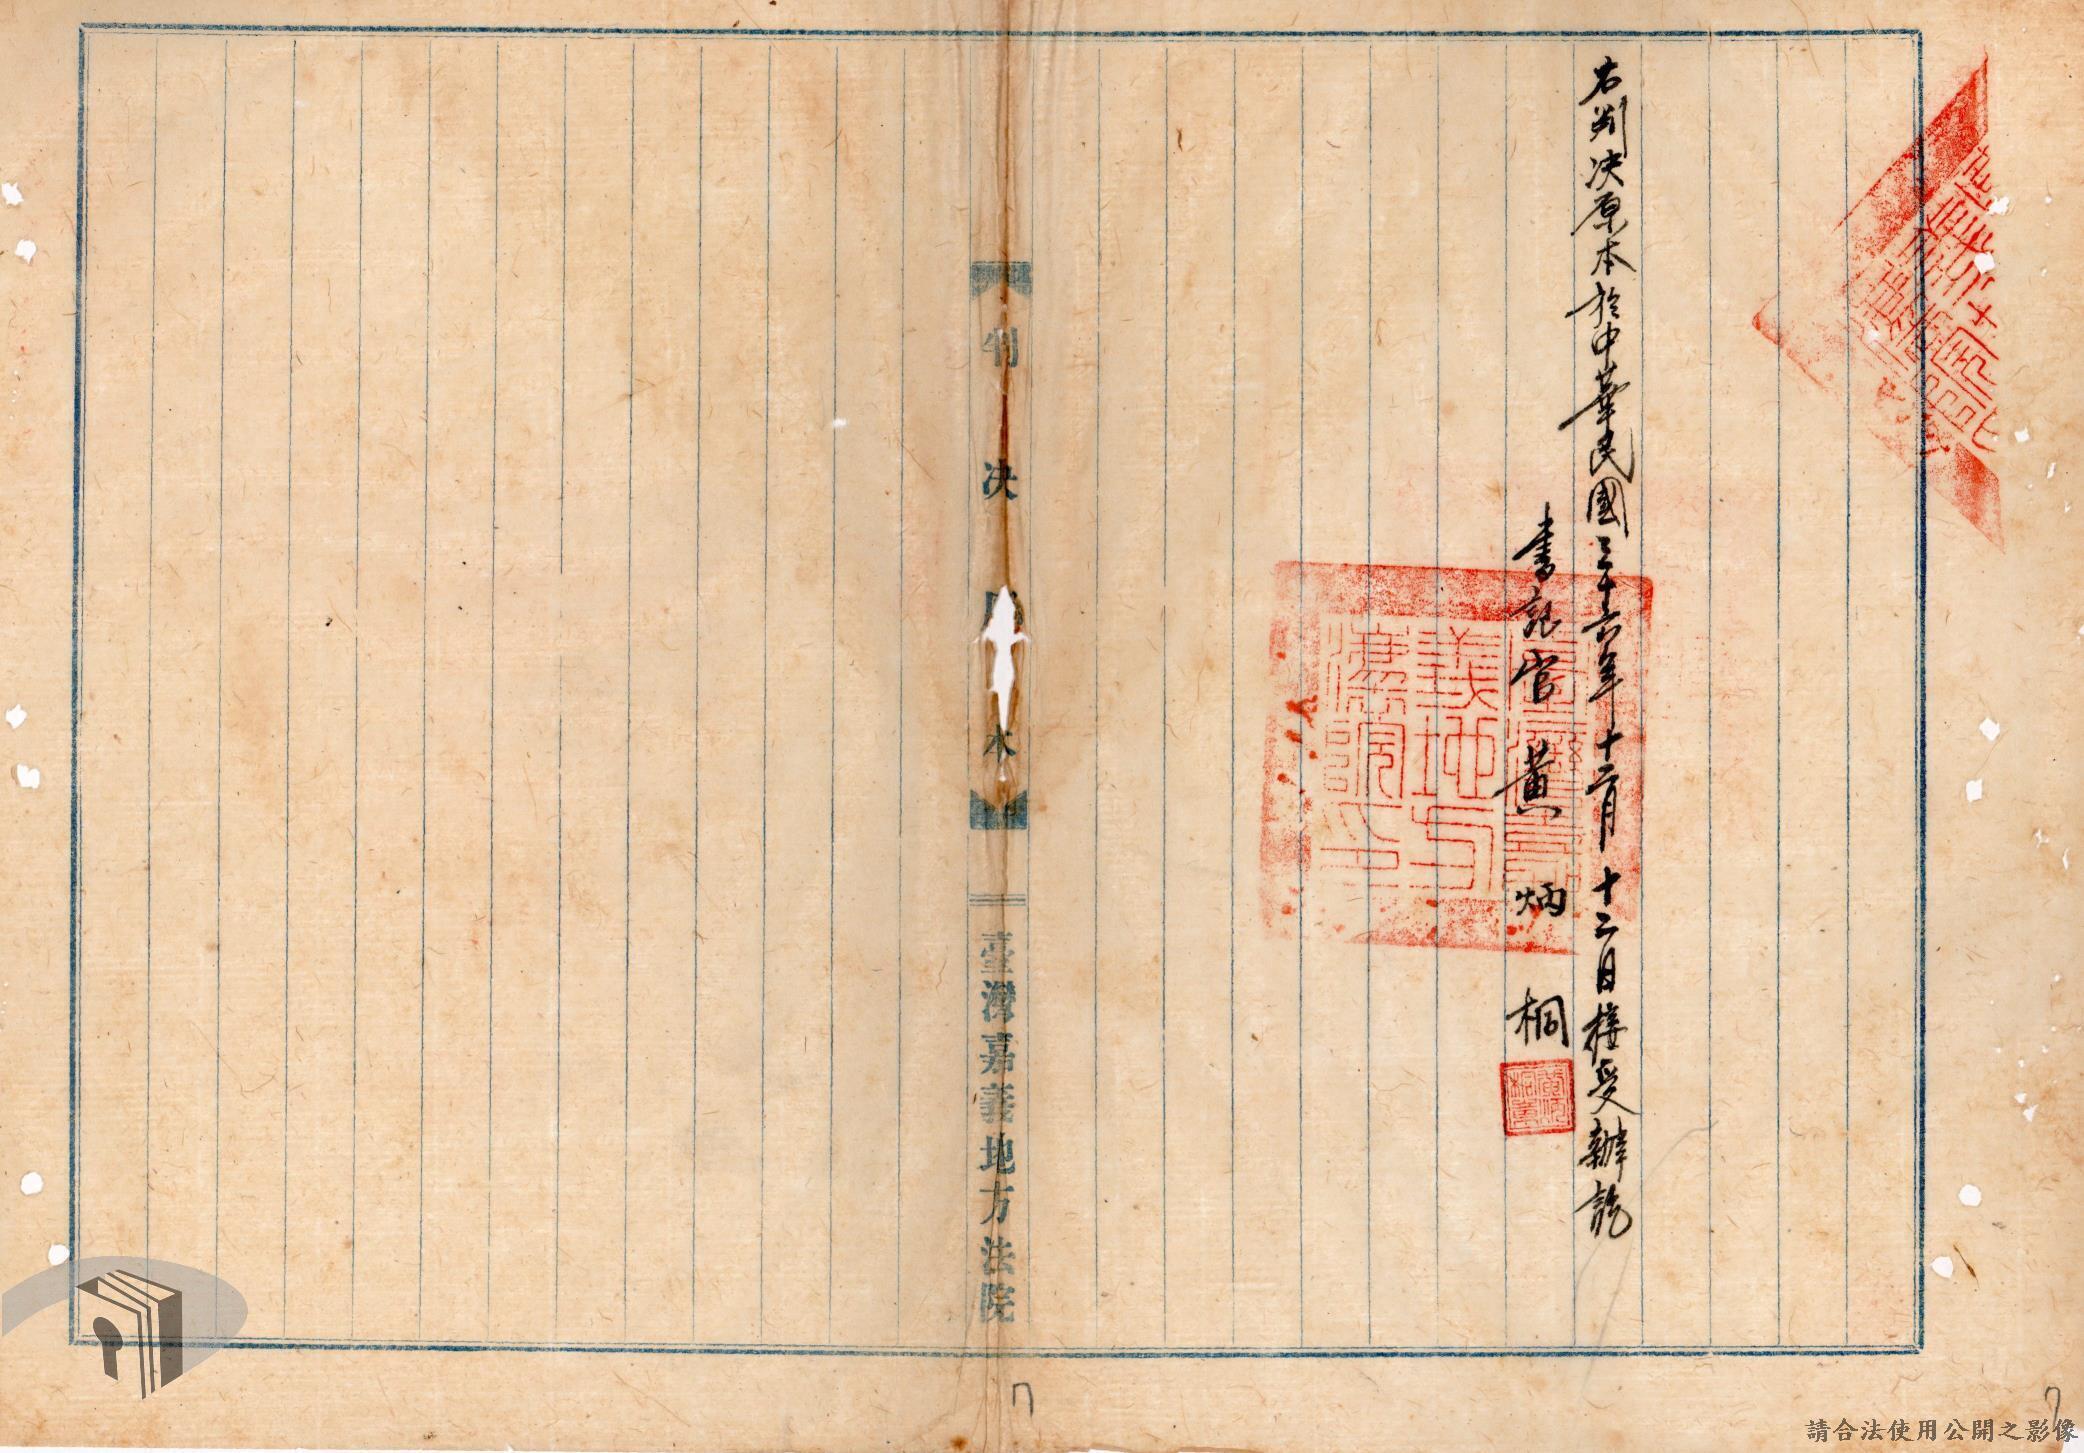 右判決原本於中華民國三十六年十二月十三日接受辦訖
書記官黃炳桐
臺灣嘉義地方法院印
判決本
臺灣嘉義地方法院
7
7
請合法使用公開之影像